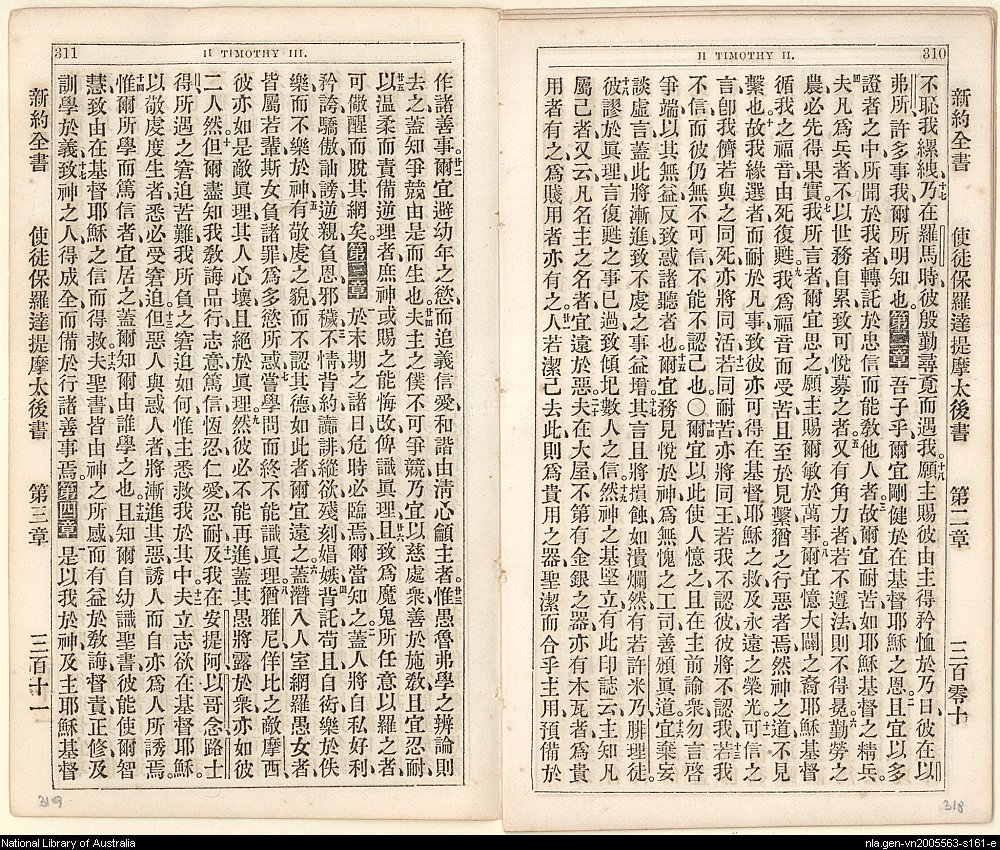 310
II TIMOTHY II.
新約全書 使徒保羅達提摩太後書 第二章 三百零十
不恥我縲絏、乃在羅馬時、彼殷勤尋覓而遇我。十八願主賜彼由主得矜恤於乃日、彼在以
弗所、許多事我爾所明知也。第二章 吾子乎、爾宜剛健於在基督耶穌之恩、且宜以多
證者之中所聞於我者、轉託於忠信而能敎他人者。三故爾宜耐苦、如耶穌基督之精兵。
夫凡爲兵者、不以世務自累、致可悅募之者。五又有角力者、若不遵法則不得冕。勤勞之
農必先得果實。我所言者、爾宜思之、願主賜爾敏於萬事。八爾宜憶大闢之裔耶穌基督
循我之福音由死復甦。九我爲福音而受苦、且至於見繫、猶之行惡者焉、然神之道不見
繫也。故我緣選者而耐於凡事、致彼亦可得在基督耶穌之救、及永遠之榮光。可信之
言、卽我儕若與之同死、亦將同活。十二若同耐苦、亦將同王、若我不認彼、彼將不認我。十三若我
不信、而彼仍無不可信、不能不認己也。〇十四爾宜以此使人憶之、且在主前諭衆、勿言啓
爭端、以其無益、反致惑諸聽者也。十五爾宜務見悅於神、爲無愧之工、司善頒眞道。十六宜棄妄
談虛言、蓋此將漸進致不虔之事益增。十七其言且將損蝕、如潰爛然、有若許米乃、腓理徒。
十八彼謬於眞理、言復甦之事已過、致傾圮數人之信。十九然神之基堅立、有此印誌云、主知凡
屬己者、又云、凡名主之名者、宜遠於惡。二十夫在大屋不第有金銀之器、亦有木瓦者、爲貴
用者有之、爲賤用者亦有之。廿一人若潔己去此、則爲貴用之器、聖潔而合乎主用、預備於
311
II TIMOTHY III.
作諸善事。廿二爾宜避幼年之慾、而追義、信、愛、和諧、由淸心籲主者。廿三惟愚魯弗學之辨論則
去之、蓋知爭競由是而生也。廿四夫主之僕不可爭競、乃宜以慈處衆、善於施敎、且宜忍耐
廿五以温柔而責備逆理者、庶神或賜之能悔改、俾識眞理、廿六且致爲魔鬼所任意以羅之者、
可儆醒而脫其網矣。第三章 一於末期之諸日、危時必臨焉、爾當知之。二蓋人將自私、好利、
矜誇、驕傲、訕謗、逆親、負恩、邪穢、三不情、背約、讒誹、縱欲、殘刻、娼嫉、四背託、苟且、自衒、樂於佚
樂而不樂於神、五有敬虔之貌、而不認其德、如此者爾宜遠之。六蓋潛入人室、網羅愚女者、
皆屬若輩、斯女負諸罪、爲多慾所惑、七嘗學問而終不能識眞理。八猶雅尼佯比之敵摩西、
彼亦如是敵眞理、其人心壞、且絕於眞理。九然彼必不能再進、蓋其愚將露於衆、亦如彼
二人然。十但爾盡知我敎誨、品行、志意、篤信、恆忍、仁愛、忍耐、十一及我在安提阿、以哥念、路士
得所遇之窘迫苦難、我所負之窘迫如何、惟主悉救我於其中。十二夫立志欲在基督耶穌、
以敬虔度生者、悉必受窘迫。十三但惡人與惑人者、將漸進其惡、誘人而自亦爲人所誘焉。
十四惟爾所學而篤信者、宜居之、蓋爾知爾由誰學之也、十五且知爾自幼識聖書、彼能使爾智
慧、致由在基督耶穌之信而得救。十六夫聖書皆由神之所感、而有益於敎誨、督責、正修、及
訓學於義、十七致神之人得成全而備於行諸善事焉。第四章 一是以我於神、及主耶穌基督
新約全書 使徒保羅達提摩太後書 第三章 三百十一
319
318
National Library of Australia
nla.gen-vn2005563-s161-e